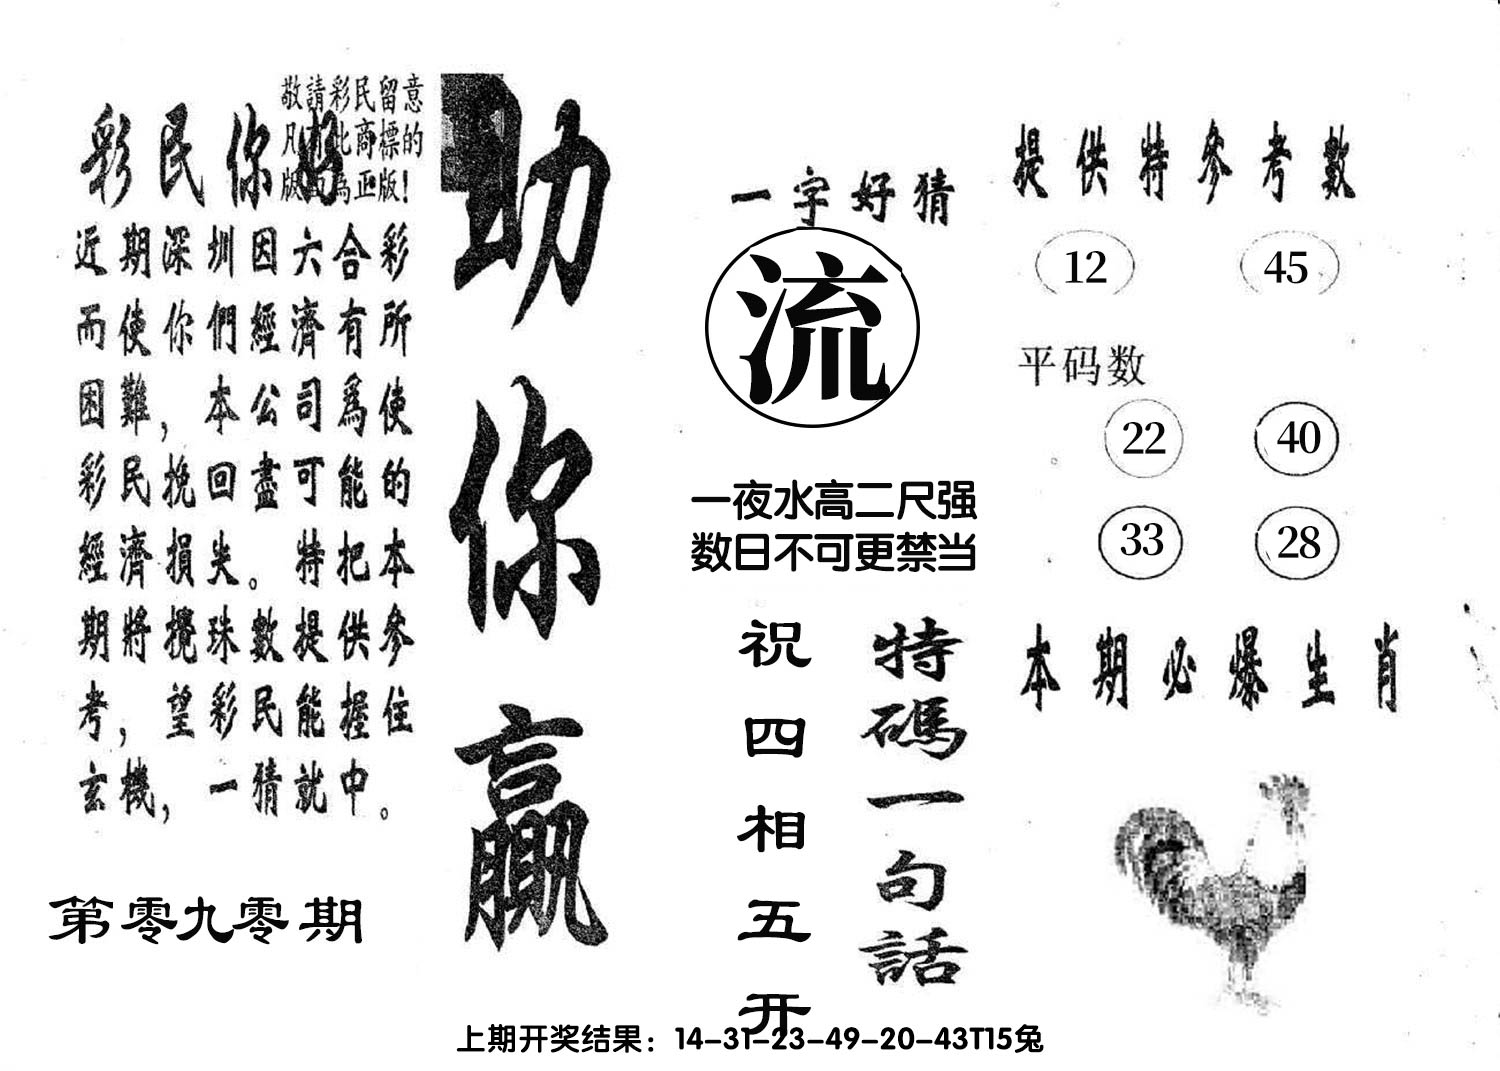 敬請彩民留意
凡有此商標的
版面為正版！
彩民你好
近期深圳因六合彩
而使你們經濟有所
困難，本公司爲使
彩民挽回盡可能的
經濟損失。特把本
期將攪珠數提供參
考，望彩民能握住
玄機，一猜就中。
第零九零期
助你贏
一字好猜
流
一夜水高二尺强
数日不可更禁当
特碼一句話
祝四相五开
提供特參考數
12 45
平码数
22 40
33 28
本期必爆生肖
上期开奖结果：14-31-23-49-20-43T15兔